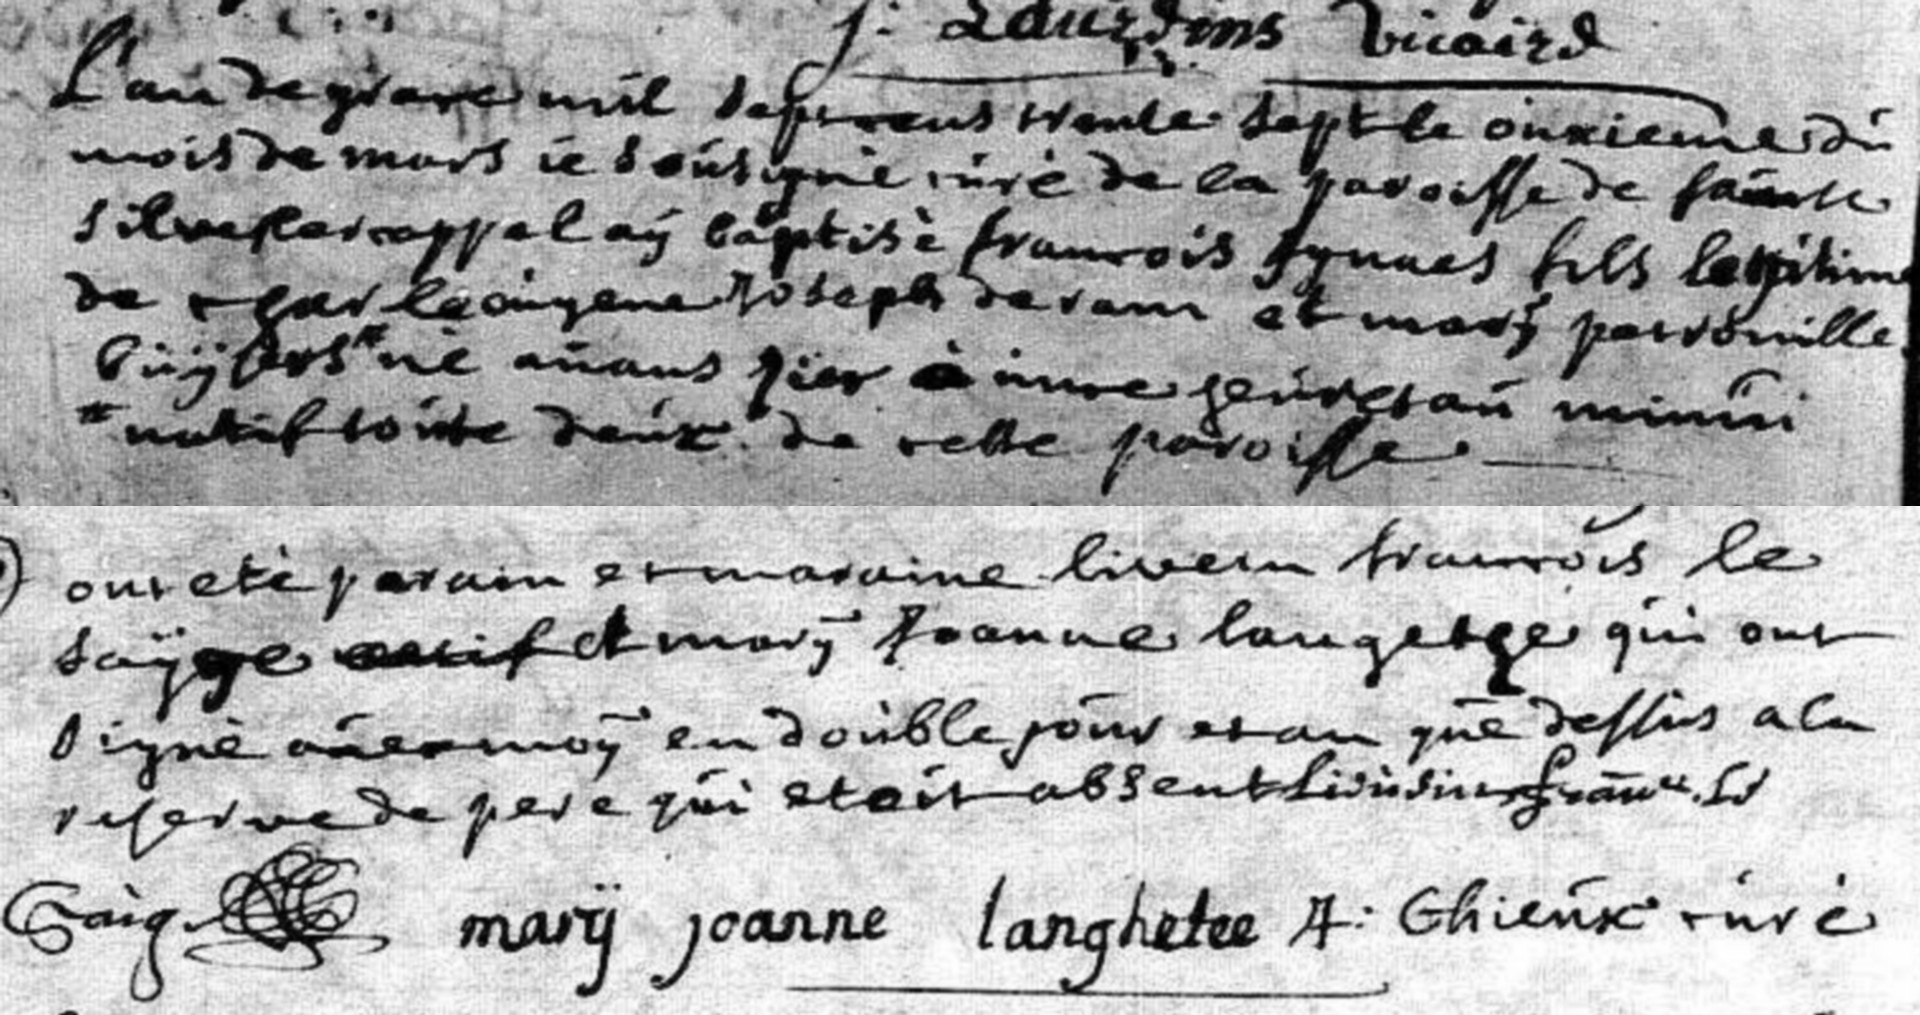 J: Lourdins Vicaire
L'an de grace mil septcens trente sept le onxieme du
mois de mars ie sousignè cúrè de la paroisse de saint
silvestercappel aÿ baptisè francois ignaes fils legitime
de charle eugene Joseph deram et marÿ perronille
Cuÿpers # nè avans hier à unne heure min
# natif toute deúx de cette paroisse
ont etè parain et maraine livein francois le
saÿge et marÿ Joanne langetee qui ont
signè avecmoÿ en double jour et an que dessus a la
reserve de pere qui etoit absent livinus franc. le
Saige marÿ joanne langhetee A: Ghieúx cúrè